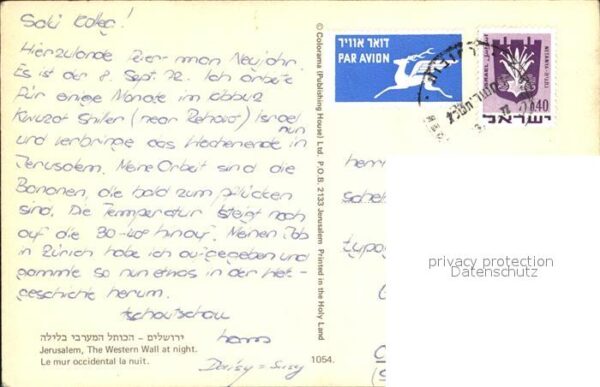 Sali Kolleg!
Hierzulande feier man Neujohr.
Es ist der 8. Sept. 72. Ich arbeite
für einige Monate im
Kwuzat Shiler (near Rehovot) Israel
und verbringe das Wochenende in
nun
Jerusalem. Meine Arbeit sind die
Bananen, die bald zum pflücken
sind. Die Temperatur steigt noch
auf die 30-40° hinauf. Meinen Job
in Zürich habe ich aufgegeben und
gammle so nun etwas in der Welt-
geschichte herum.
tschautschau
hans
Daisy = Susy
ירושלים - הכותל המערבי בלילה
Jerusalem, The Western Wall at night.
Le mur occidental la nuit.
1054.
© Colorama (Publishing House) Ltd. P.O.B. 2133 Jerusalem Printed in the Holy Land
דואר אוויר
PAR AVION
NETANYA
ISRAEL
0.40
ישראל
privacy protection
Datenschutz